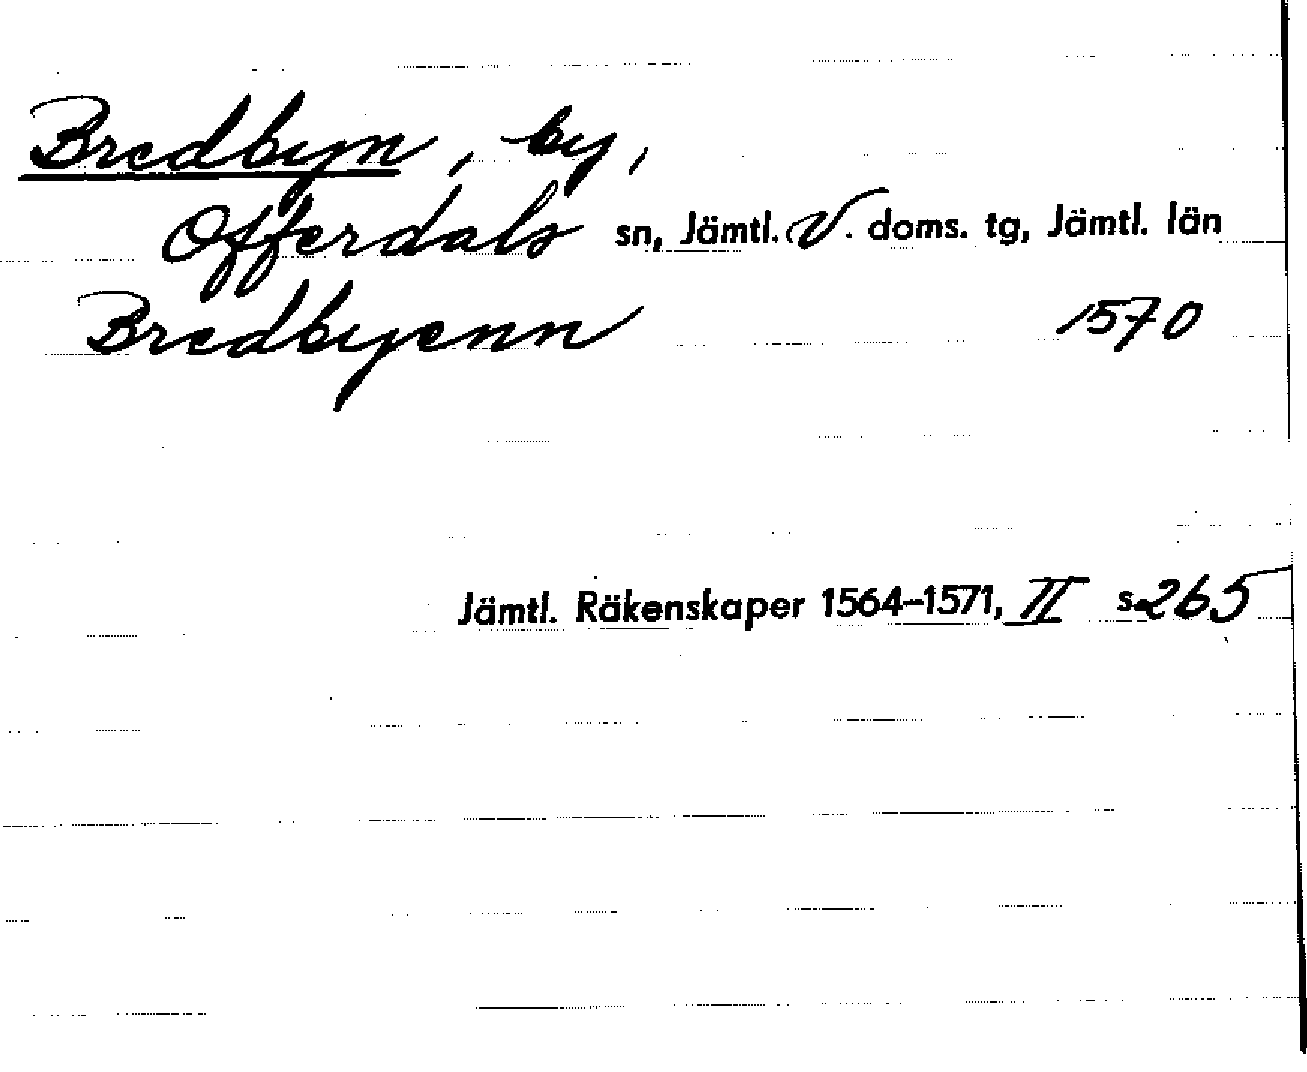 Bredbyn, by,
Offerdals sn, Jämtl. V. doms. tg, Jämtl. län
Bredbyenn 1570
Jämtl. Räkenskaper 1564–1571, II s. 265